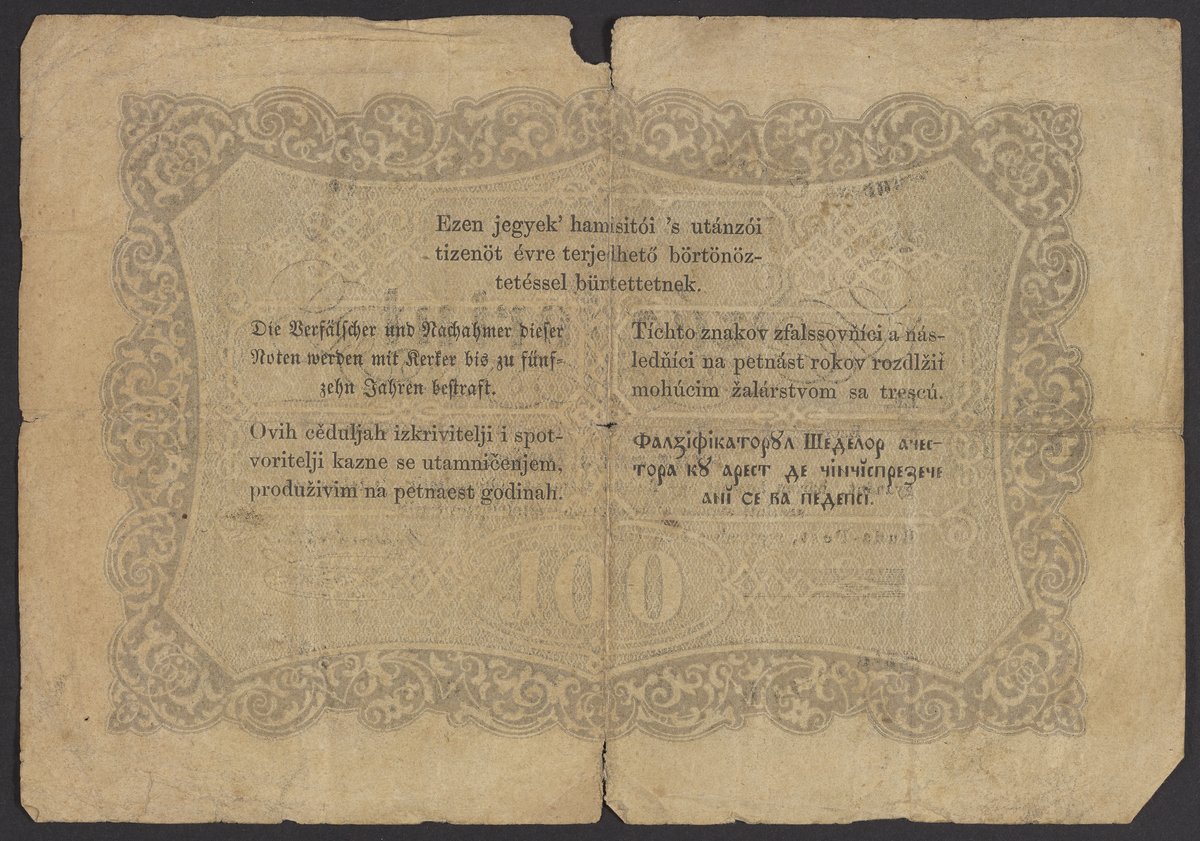 Ezen jegyek’ hamisitói ’s utánzói
tizenöt évre terjedhető börtönöz-
tetéssel büntettetnek.
Die Verfälscher und Nachahmer dieser
Noten werden mit Kerker bis zu fünf-
zehn Jahren bestraft.
Tíchto znakov zfalssovňíci a nás-
ledňíci na petnást rokov rozdlžiť
mohúcim žalárstvom sa trescú.
Ovih cěduljah izkrivitelji i spot-
voritelji kazne se utamničenjem,
produživim na petnaest godinah.
Фалзіфікаторꙋл Шеделор ачес-
тора кꙋ арест де чінчіспрезече
анї се ва педепсі.
100